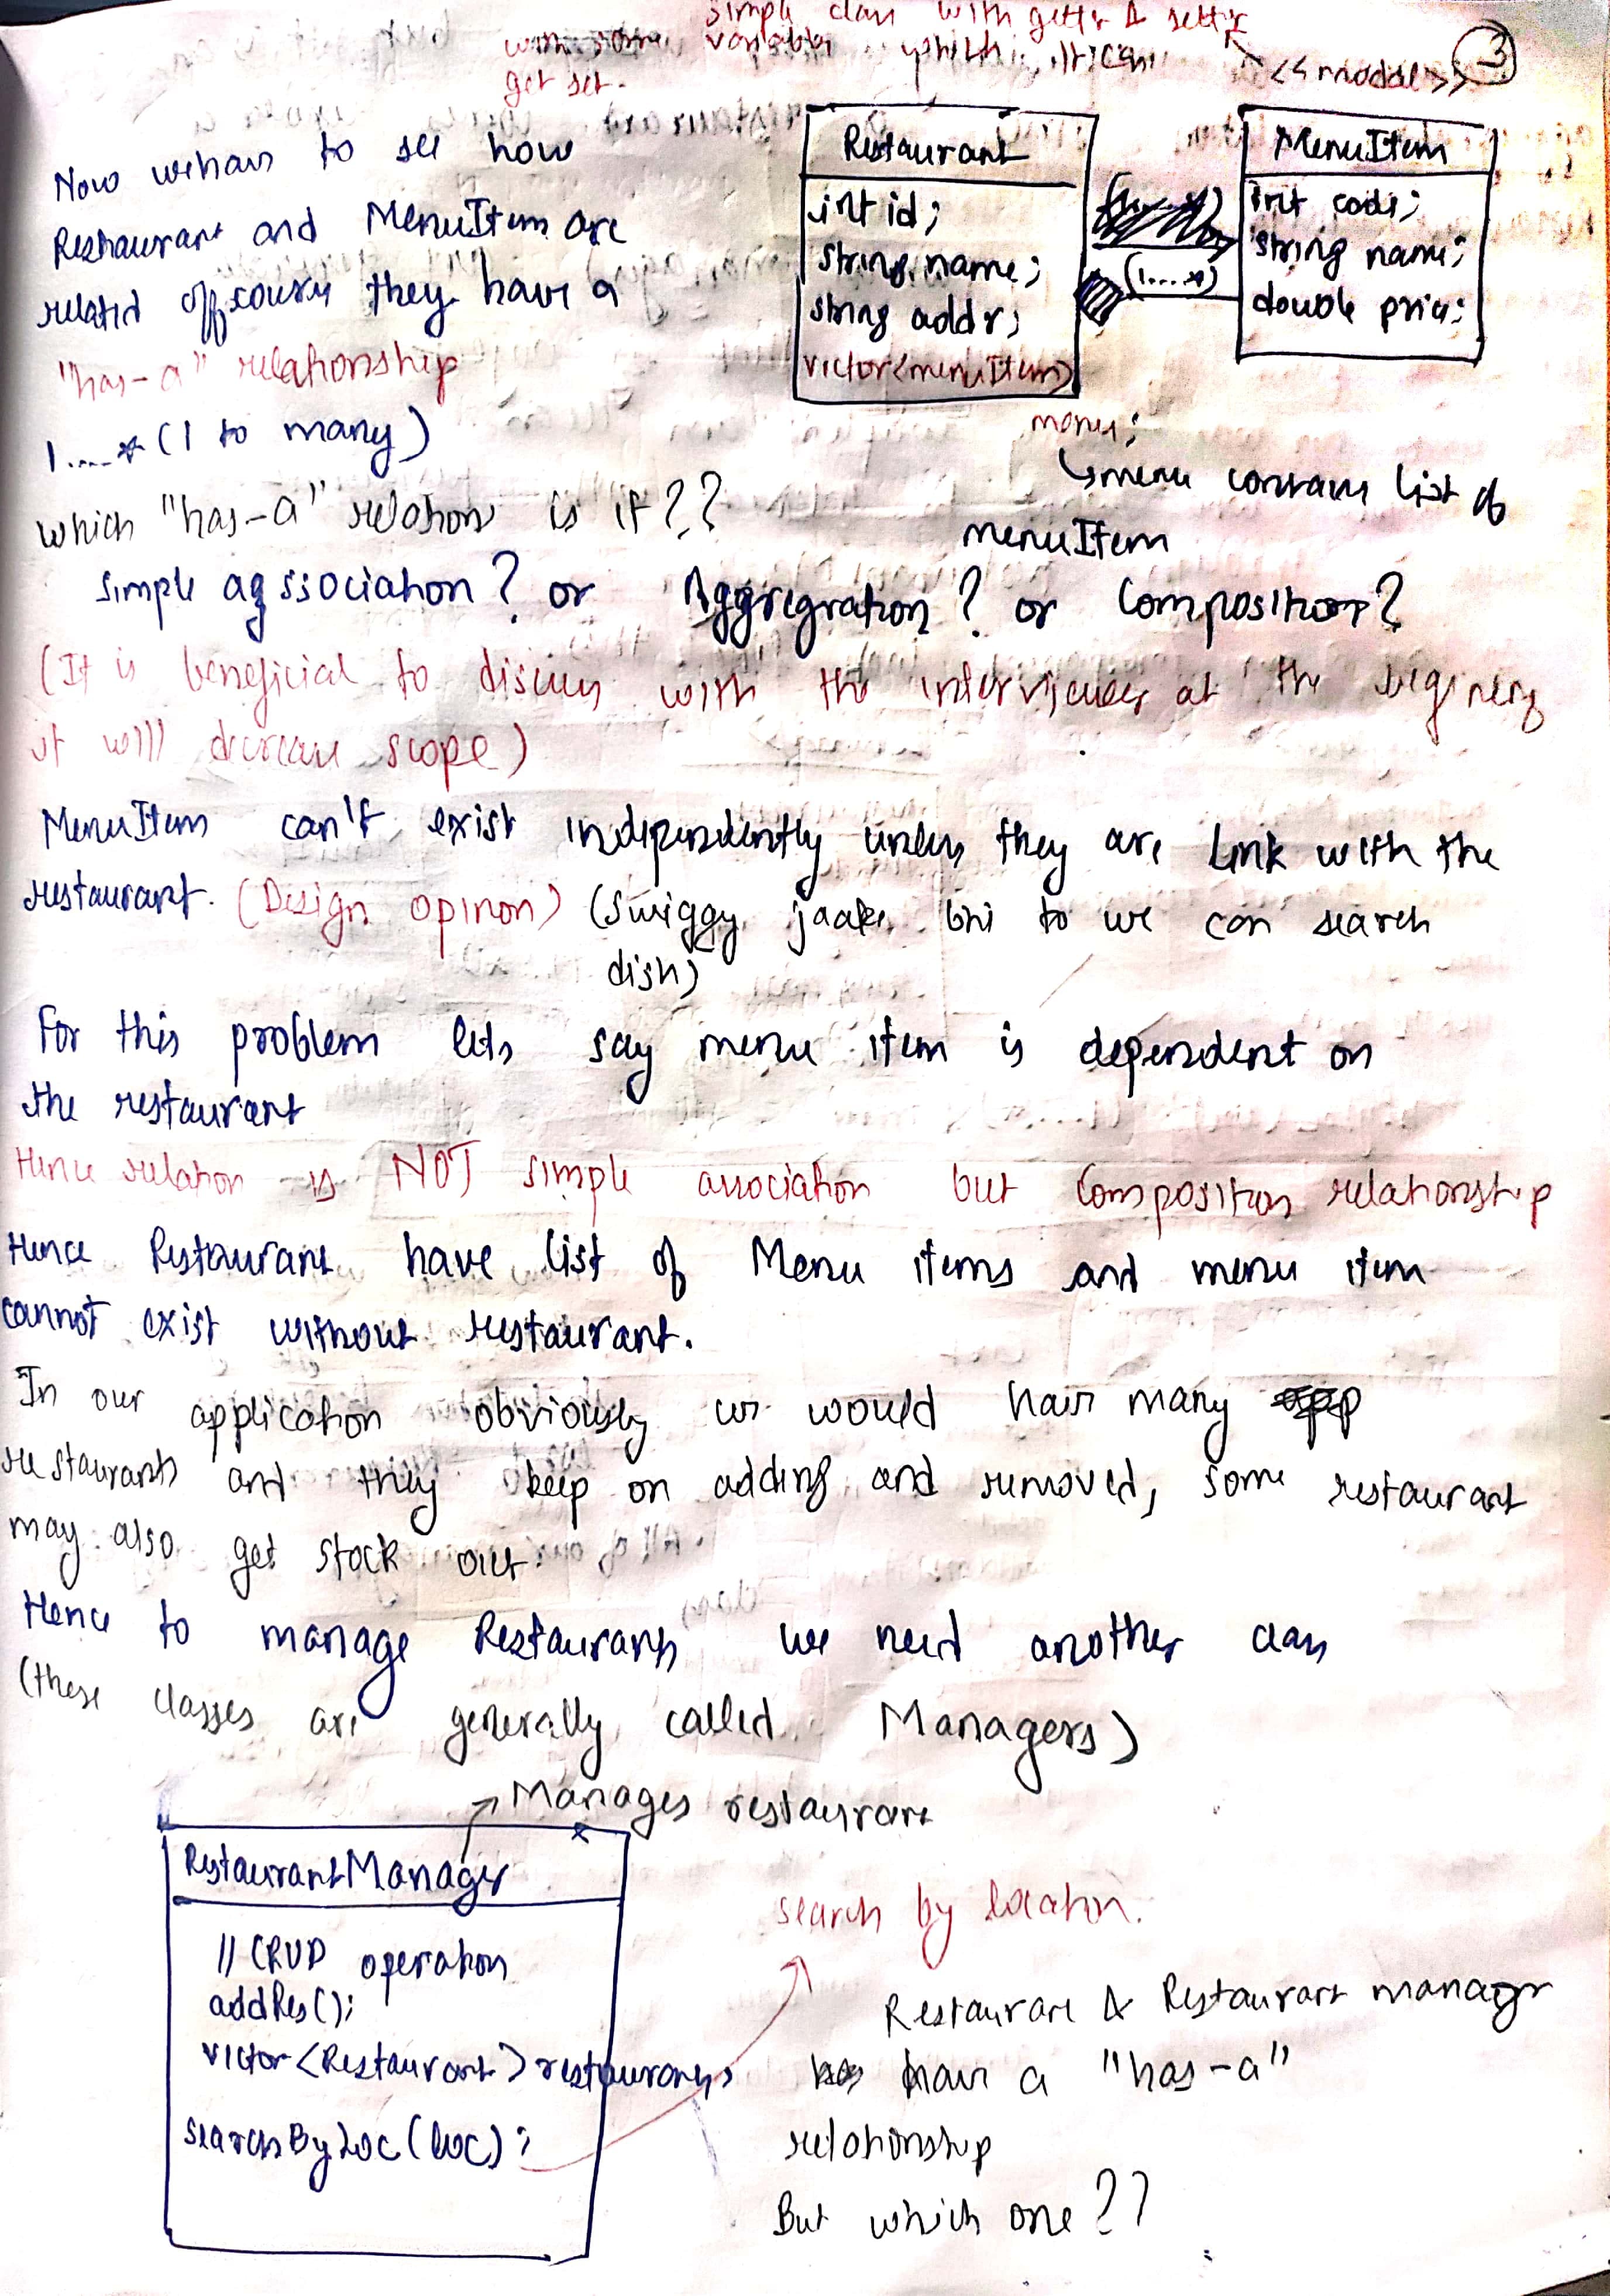 simple class with getter & setter
with some variables which it can
get set.
<<model>>
3
Now we have to see how
Restaurant and MenuItem are
related offcourse they have a
"has-a" relationship
1....* (1 to many)
Restaurant
int id;
string name;
string addr;
vector<menuItem>
menu;
(1....*)
(1....*)
MenuItem
int code;
string name;
double price;
↳menu contains list of
menuItem
which "has-a" relation is it??
simple agssociation? or Aggregration? or Composition?
(It is beneficial to discuss with the interviewer at the begining
it will decrease scope)
MenuItem can't exist independently unless they are link with the
restaurant. (Design opinon) (Swiggy jaake bhi to we can search
dish)
For this problem lets say menu item is dependent on
the restaurant
Hence relation is NOT simple association but Composition relationship
Hence Restaurant have list of Menu items and menu item
cannot exist without restaurant.
In our application obviously we would have many
restaurants and they keep on adding and removed, some restaurant
may also get stock out.
Hence to manage Restaurants we need another class
(these classes are generally called Managers)
→ Manages restaurant
RestaurantManager
// CRUD operation
addRes();
vector<Restaurant> restaurants;
searchByLoc(loc);
search by location.
Restaurant & Restaurant manager
have a "has-a"
relationship
But which one??